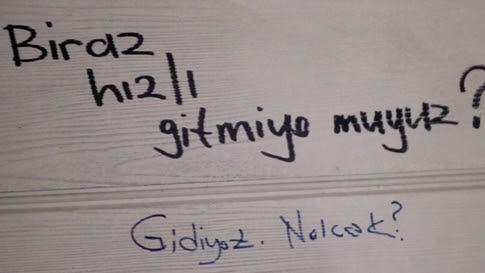 Biraz
hızlı
gitmiyo muyuz?
Gidiyoz. Nolcak?